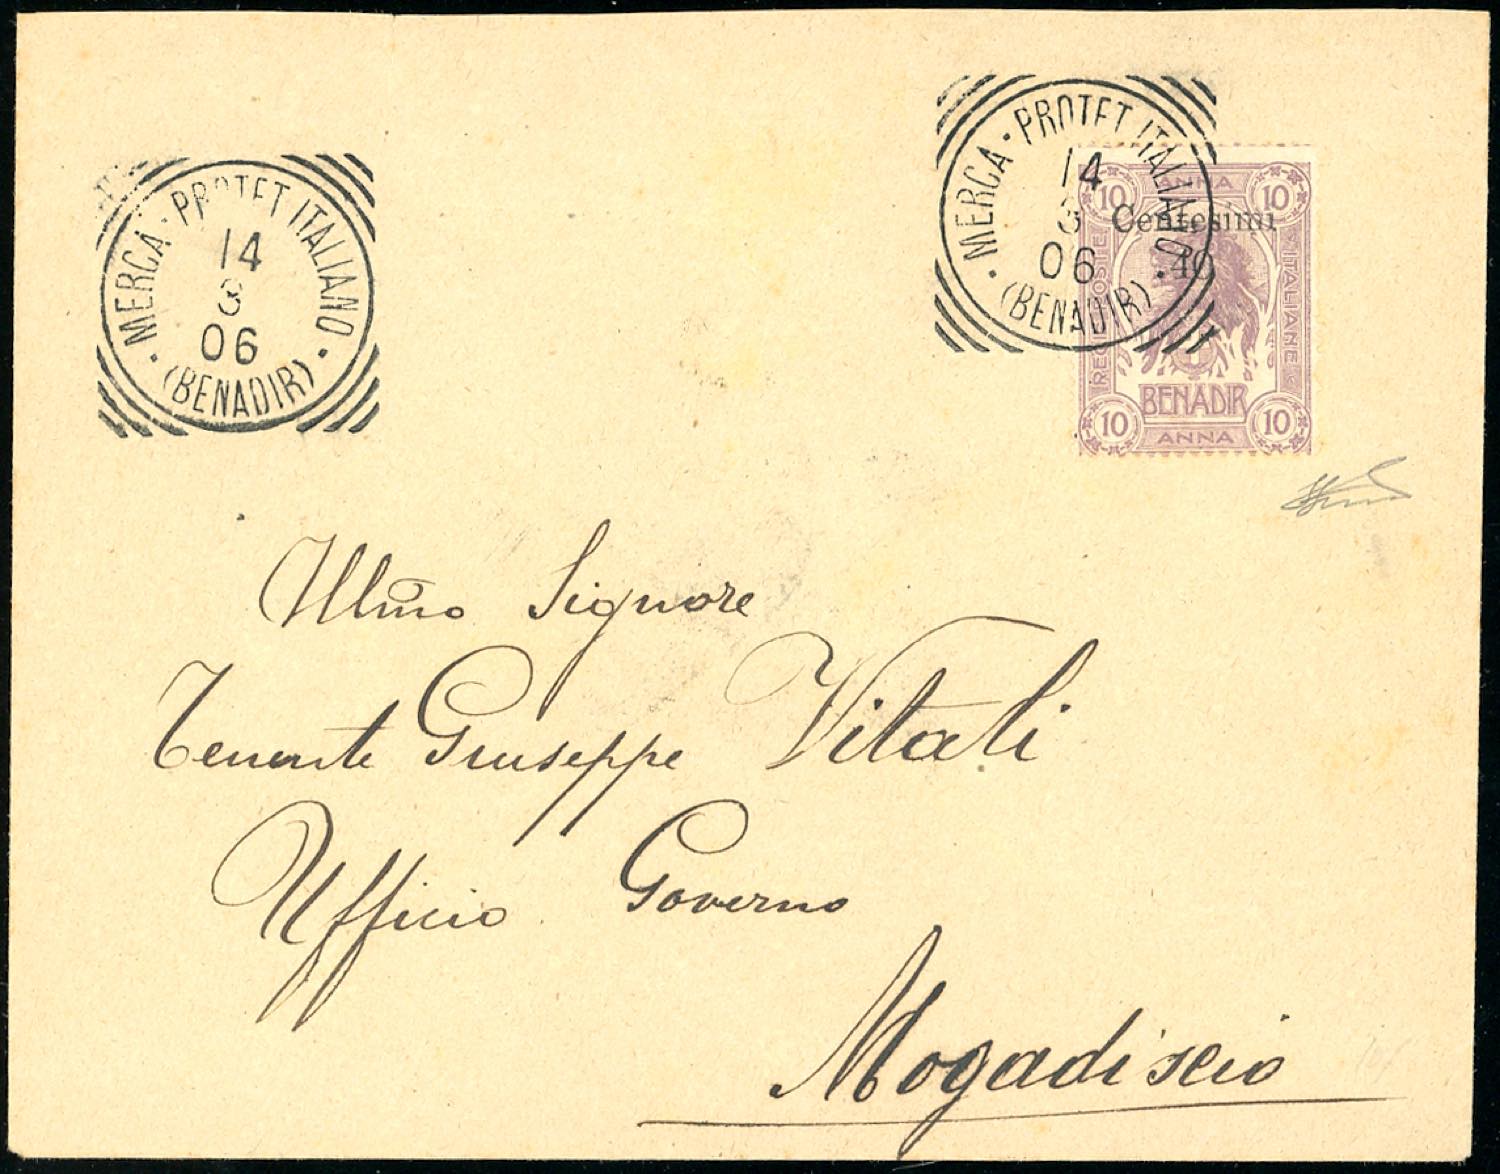 MERCA · PROTET ITALIANO
14
3
06
(BENADIR)
MERCA · PROTET ITALIANO
14
3
06
(BENADIR)
ANNA
10 10
Centesimi
40
REGIE POSTE ITALIANE
BENADIR
10 ANNA 10
Illmo Signore
Tenente Giuseppe Vitali
Ufficio Governo
Mogadiscio